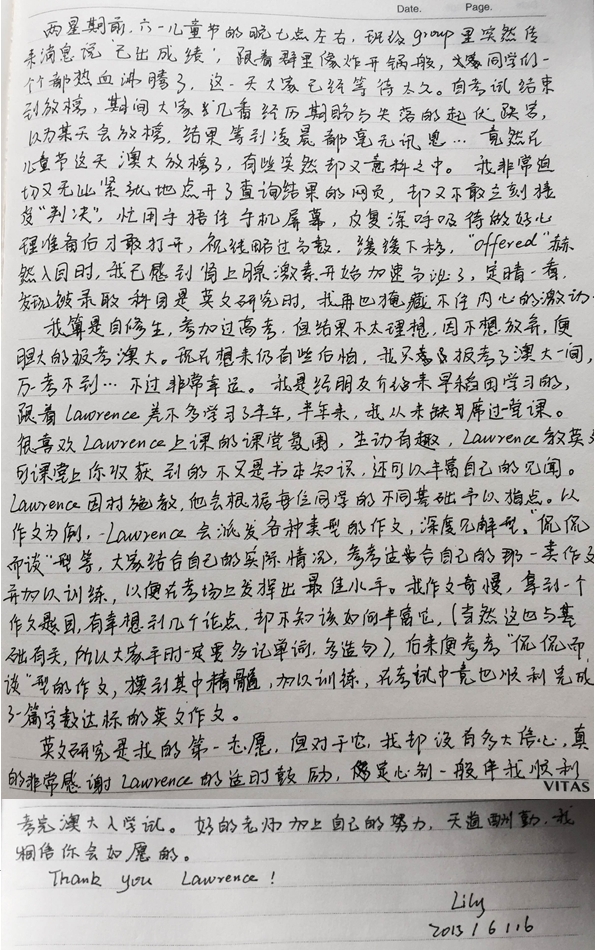 Date.          Page.
两星期前,六一儿童节的晚七点左右,班级group里突然传
来消息说‘已出成绩’,跟着群里像炸开锅般,大家同学们一
个个都热血沸腾了,这一天大家已经等待太久。自考试结束
到放榜,期间大家几番经历期盼与失落的起伏跌宕,
以为某天会放榜,结果等到凌晨都毫无讯息… 竟然在
儿童节这天澳大放榜了,有些突然却又意料之中。我非常迫
切又无比紧张地点开了查询结果的网页,却又不敢立刻接
受“判决”,忙用手捂住手机屏幕,反复深呼吸待做好心
理准备后才敢打开,视线略过分数,缓缓下移,“offered”赫
然入目时,我已感到肾上腺激素开始加速分泌了,定睛一看,
发现被录取科目是英文研究时,我再也掩藏不住内心的激动。
我算是自修生,参加过高考,但结果不太理想,因不想放弃,便
胆大的报考澳大。现在想来仍有些后怕,我只报考了澳大一间,
万一考不到… 不过非常幸运。我是经朋友介绍来早稻田学习的,
跟着Lawrence差不多学习了半年,半年来,我从未缺席过一堂课。
很喜欢Lawrence上课的课堂氛围,生动有趣,Lawrence教英文
可课堂上你收获到的不只是书本知识,还可以丰富自己的见闻。
Lawrence因材施教,他会根据每位同学的不同基础予以指点。以
作文为例,Lawrence会派发各种类型的作文,深度见解型,“侃侃
而谈”型等,大家结合自己的实际情况,参考适合自己的那一类作文
并加以训练,以便在考场上发挥出最佳水平。我作文奇慢,拿到一个
作文题目,有幸想到几个论点,却不知该如何丰富它,(当然这也与基
础有关,所以大家平时一定要多记单词,多造句),后来便参考“侃侃而
谈”型的作文,摸到其中精髓,加以训练,在考试中竟也顺利完成
了一篇字数达标的英文作文。
英文研究是我的第一志愿,但对于它,我却没有多大信心,真
的非常感谢Lawrence的适时鼓励,像定心剂一般伴我顺利
VITAS
考完澳大入学试。好的老师加上自己的努力,天道酬勤,我
相信你会如愿的。
Thank you Lawrence!
Lily
2015/6/16